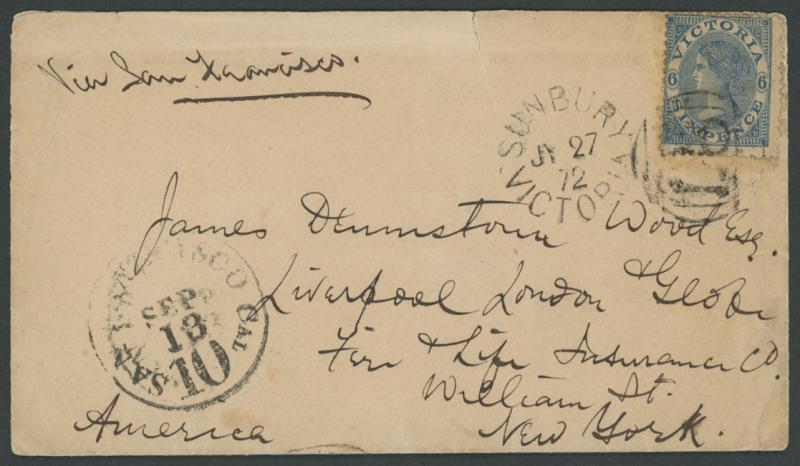 Via San Francisco.
VICTORIA
6 6
SIXPENCE
SUNBURY
JY 27
72
VICTORIA
James Drumstown Wood Esq.
Liverpool London & Globe
Fire & Life Insurance Co.
William St.
New York.
America
SAN FRANCISCO CAL
SEP
13
10